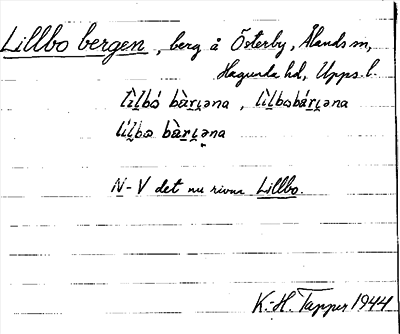 Lillbo bergen, berg å Österby, Ålands sn,
Hagunda hd, Upps. l.
lìlbó bàrɩəna, lìlbobárɩəna
lílbɷ bàrɩəna
N-V det nu rivna Lillbo.
K.-H. Tapper 1944